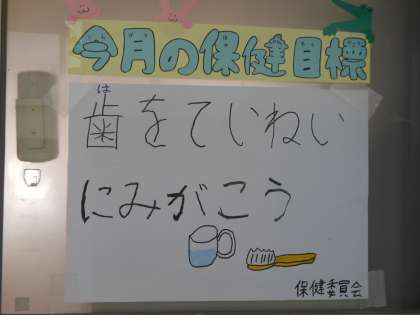 今月の保健目標
は
歯をていねい
にみがこう
保健委員会